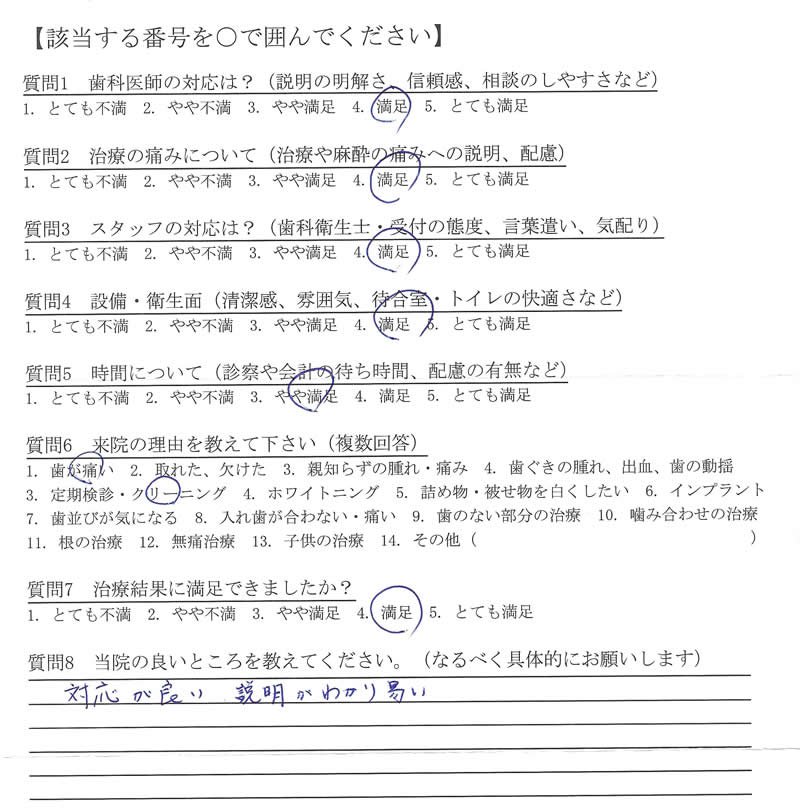 【該当する番号を○で囲んでください】
質問1　歯科医師の対応は？（説明の明解さ、信頼感、相談のしやすさなど）
1. とても不満　2. やや不満　3. やや満足　4. 満足　5. とても満足
質問2　治療の痛みについて（治療や麻酔の痛みへの説明、配慮）
1. とても不満　2. やや不満　3. やや満足　4. 満足　5. とても満足
質問3　スタッフの対応は？（歯科衛生士・受付の態度、言葉遣い、気配り）
1. とても不満　2. やや不満　3. やや満足　4. 満足　5. とても満足
質問4　設備・衛生面（清潔感、雰囲気、待合室・トイレの快適さなど）
1. とても不満　2. やや不満　3. やや満足　4. 満足　5. とても満足
質問5　時間について（診察や会計の待ち時間、配慮の有無など）
1. とても不満　2. やや不満　3. やや満足　4. 満足　5. とても満足
質問6　来院の理由を教えて下さい（複数回答）
1. 歯が痛い　2. 取れた、欠けた　3. 親知らずの腫れ・痛み　4. 歯ぐきの腫れ、出血、歯の動揺
3. 定期検診・クリーニング　4. ホワイトニング　5. 詰め物・被せ物を白くしたい　6. インプラント
7. 歯並びが気になる　8. 入れ歯が合わない・痛い　9. 歯のない部分の治療　10. 噛み合わせの治療
11. 根の治療　12. 無痛治療　13. 子供の治療　14. その他（　　　　　　　　　　）
質問7　治療結果に満足できましたか？
1. とても不満　2. やや不満　3. やや満足　4. 満足　5. とても満足
質問8　当院の良いところを教えてください。（なるべく具体的にお願いします）
対応が良い　説明がわかり易い